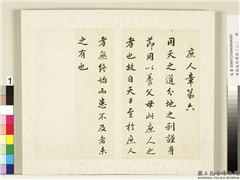 庶人章第六
用天之道分地之利謹身
節用以養父母此庶人之
孝也故自天子至於庶人
孝無終始而患不及者未
之有也